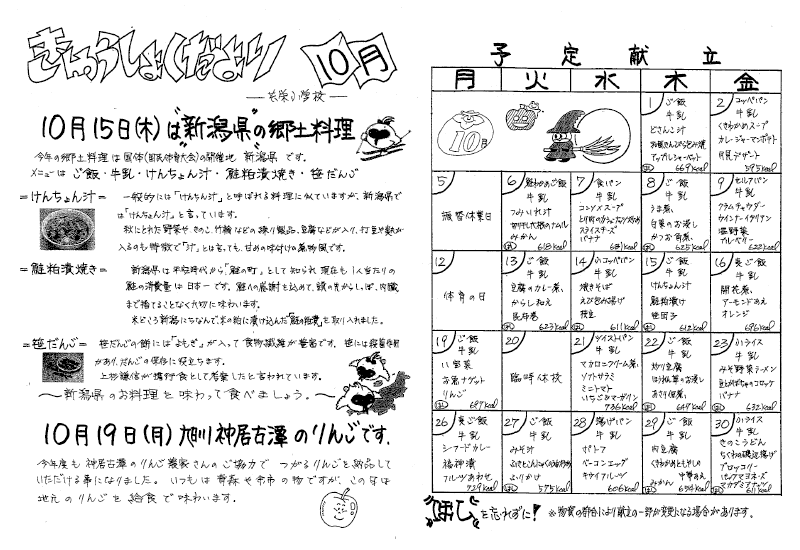 きゅうしょくだより
10月
10月15日(木)は"新潟県"の郷土料理
今年の郷土料理は国体(国民体育大会)の開催地 新潟県です。
メニューは ご飯・牛乳・けんちょん汁・鮭粕漬焼き・笹だんご
=けんちょん汁=
一般的には「けんちん汁」と呼ばれる料理に似ていますが、新潟県で
は「けんちょん汁」と言っています。
秋にとれた野菜や きのこ、竹輪などの練り製品、豆腐などが入り、打豆や麩が
入るのも特徴で「汁」とは言っても、甘めの味付けの煮物風です。
=鮭粕漬焼き=
新潟県は 平安時代から「鮭の町」として知られ 現在も1人当たりの
鮭の消費量は 日本一です。鮭への感謝を込めて、頭の先からしっぽ、内臓
まで捨てることなく大切に 味わいます。
米どころ新潟にちなんで、米の粕に漬け込んだ「鮭の粕漬」を取り入れました。
=笹だんご=
笹だんごの餅には「よもぎ」が入って 食物繊維が豊富です。笹には殺菌作用
があり、だんごの保存に役立ちます。
上杉謙信が携行食として考案したと言われています。
～新潟県のお料理を味わって食べましょう。～
10月19日(月)旭川神居古潭のりんごです。
今年度も 神居古潭のりんご農家さんのご協力で つがるりんごを納品して
いただける事になりました。いつもは 青森や余市の物ですが、この日は
地元のりんごを給食で味わいます。
予定献立
月 火 水 木 金
10月
1 ご飯
牛乳
どさんこ汁
アップルシャーベット
669kcal
2 コッペパン
牛乳
くきわかめスープ
カレージャーマンポテト
595kcal
5
振替休業日
6 鮭わかめご飯
牛乳
つみいれ汁
切干大根のナムル
みかん
618kcal
7 食パン
牛乳
コンソメスープ
スライスチーズ
バナナ
8 ご飯
牛乳
うま煮
白菜のお浸し
かつお角煮
625kcal
9 セルフパン
牛乳
クラムチャウダー
ウインナーイタリアン
温野菜
ブルーベリー
622kcal
12
体育の日
13 ご飯
牛乳
豆腐のカレー煮
からし和え
623kcal
14 小コッペパン
牛乳
焼きそば
えびかき揚げ
枝豆
611kcal
15 ご飯
牛乳
けんちょん汁
鮭粕漬け
笹団子
612kcal
16 麦ご飯
牛乳
開花煮
アーモンドあえ
オレンジ
686kcal
19 ご飯
牛乳
八宝菜
お魚ナゲット
りんご
20
臨時休校
21 ツイストパン
牛乳
マカロニクリーム煮
ツナサラダ
ミニトマト
いちごマーガリン
736kcal
22 ご飯
牛乳
炒り豆腐
ほうれん草のお浸し
あさり佃煮
649kcal
23 小ライス
牛乳
みそ野菜ラーメン
バナナ
632kcal
26 麦ご飯
牛乳
シーフードカレー
福神漬
フルーツあわせ
739kcal
27 ご飯
牛乳
みそ汁
ふりかけ
575kcal
28 揚げパン
牛乳
ポトフ
ベーコンエッグ
キウイフルーツ
606kcal
29 ご飯
牛乳
肉豆腐
くきわかめともやしの
中華あえ
みかん
654kcal
30 小ライス
牛乳
きのこうどん
ちくわの磯辺揚げ
ブロッコリー
パックマヨネーズ
611kcal
"はし"を忘れずに!
※物資の都合により献立の一部が変更になる場合があります。